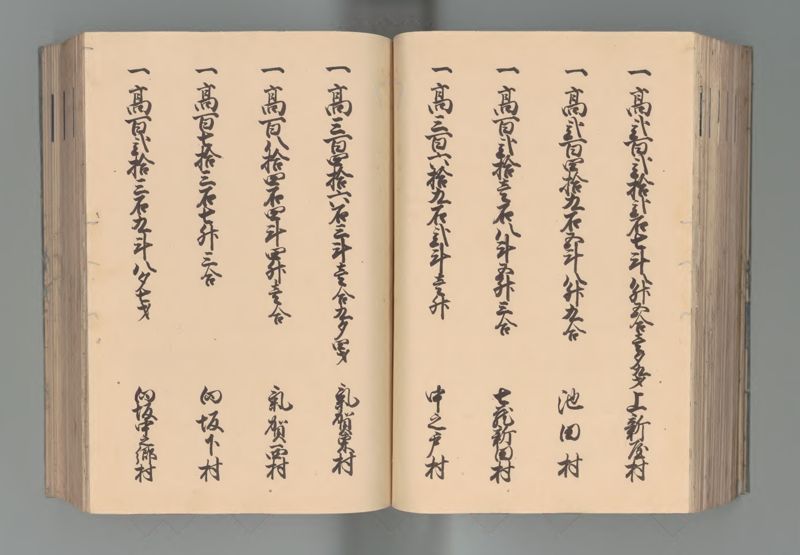 一 高弐百弐拾弐石七斗八升五合壱夕九才 上新屋村
一 高弐百四拾五石五斗八升九合 池田村
一 高百弐拾壱石八斗五升三合 七蔵新田村
一 高三百六拾九石弐斗壱升 中之戸村
一 高三百四拾六石三斗壱合九夕四才 気賀東村
一 高百八拾四石四斗四升壱合 気賀西村
一 高百七拾三石七升三合 向坂下村
一 高百弐拾三石九斗八夕七才 向坂中之郷村